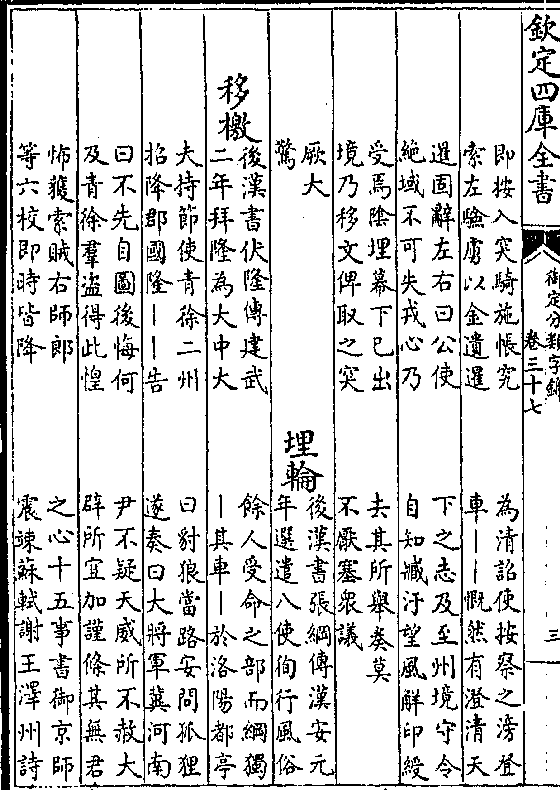 欽定四庫全書
御定分類字錦
卷三十七
三
即按入突騎施帳究
索左驗虜以金遺暹
暹固辭左右曰公使
絶域不可失戎心乃
受焉陰埋幕下已出
境乃移文俾取之突
厥大
驚
移檄
後漢書伏隆傳建武
二年拜隆為大中大
夫持節使青徐二州
招降郡國隆——告
曰不先自圖後悔何
及青徐羣盜得此惶
怖獲索賊右師郎
等六校即時皆降
為清詔使按察之滂登
車——慨然有澄清天
下之志及至州境守令
自知臧汙望風解印綬
去其所舉奏莫
不厭塞衆議
埋輪
後漢書張綱傳漢安元
年選遣八使徇行風俗
餘人受命之部而綱獨
—其車—於洛陽都亭
曰豺狼當路安問狐狸
遂奏曰大將軍冀河南
尹不疑天威所不赦大
辟所宜加謹條其無君
之心十五事書御京師
震竦蘇軾謝王澤州詩